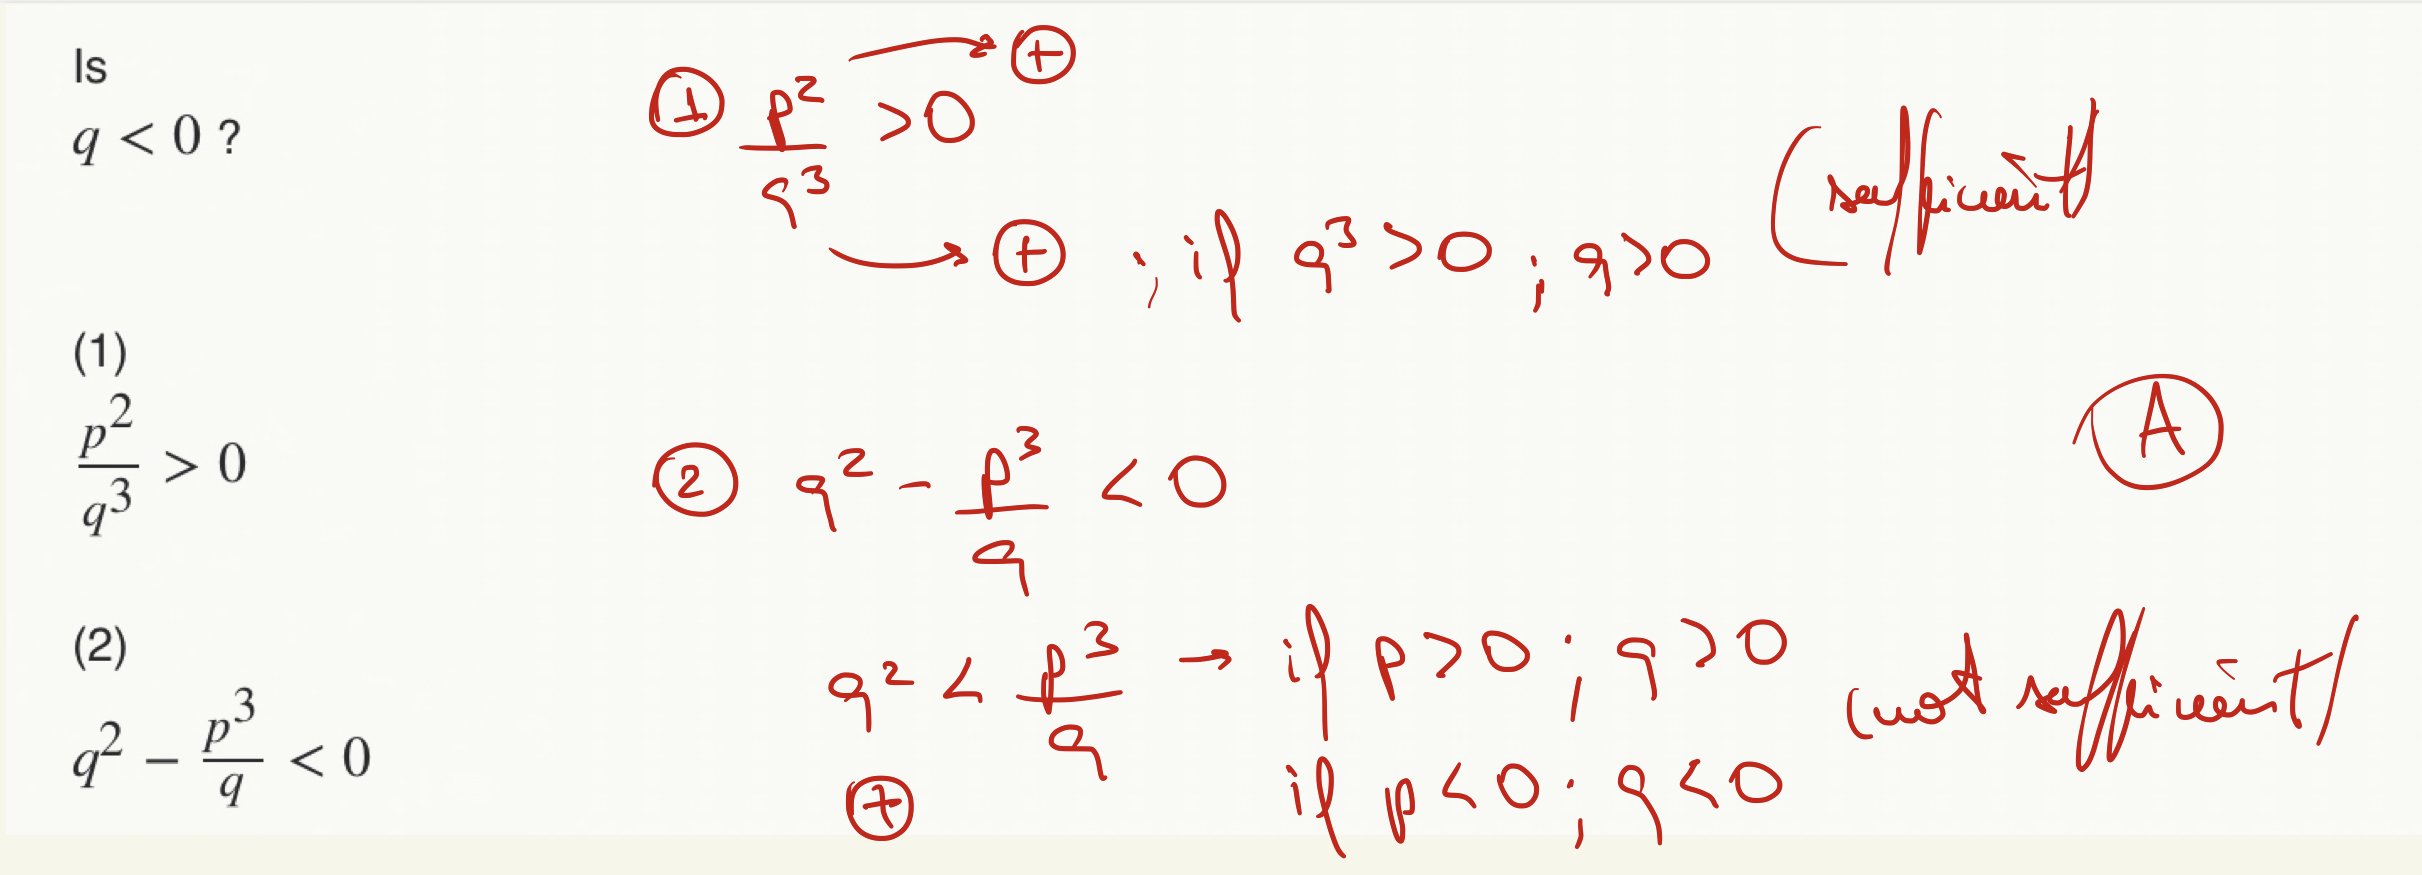 Is
q < 0 ?
(1)
p²/q³ > 0
(2)
q² − p³/q < 0
① p²/q³ > 0 → ⊕
→ ⊕ ; if q³ > 0 ; q > 0 (sufficient)
② q² - p³/q < 0
q² < p³/q → if p > 0 ; q > 0 (not sufficient)
⊕ if p < 0 ; q < 0
A